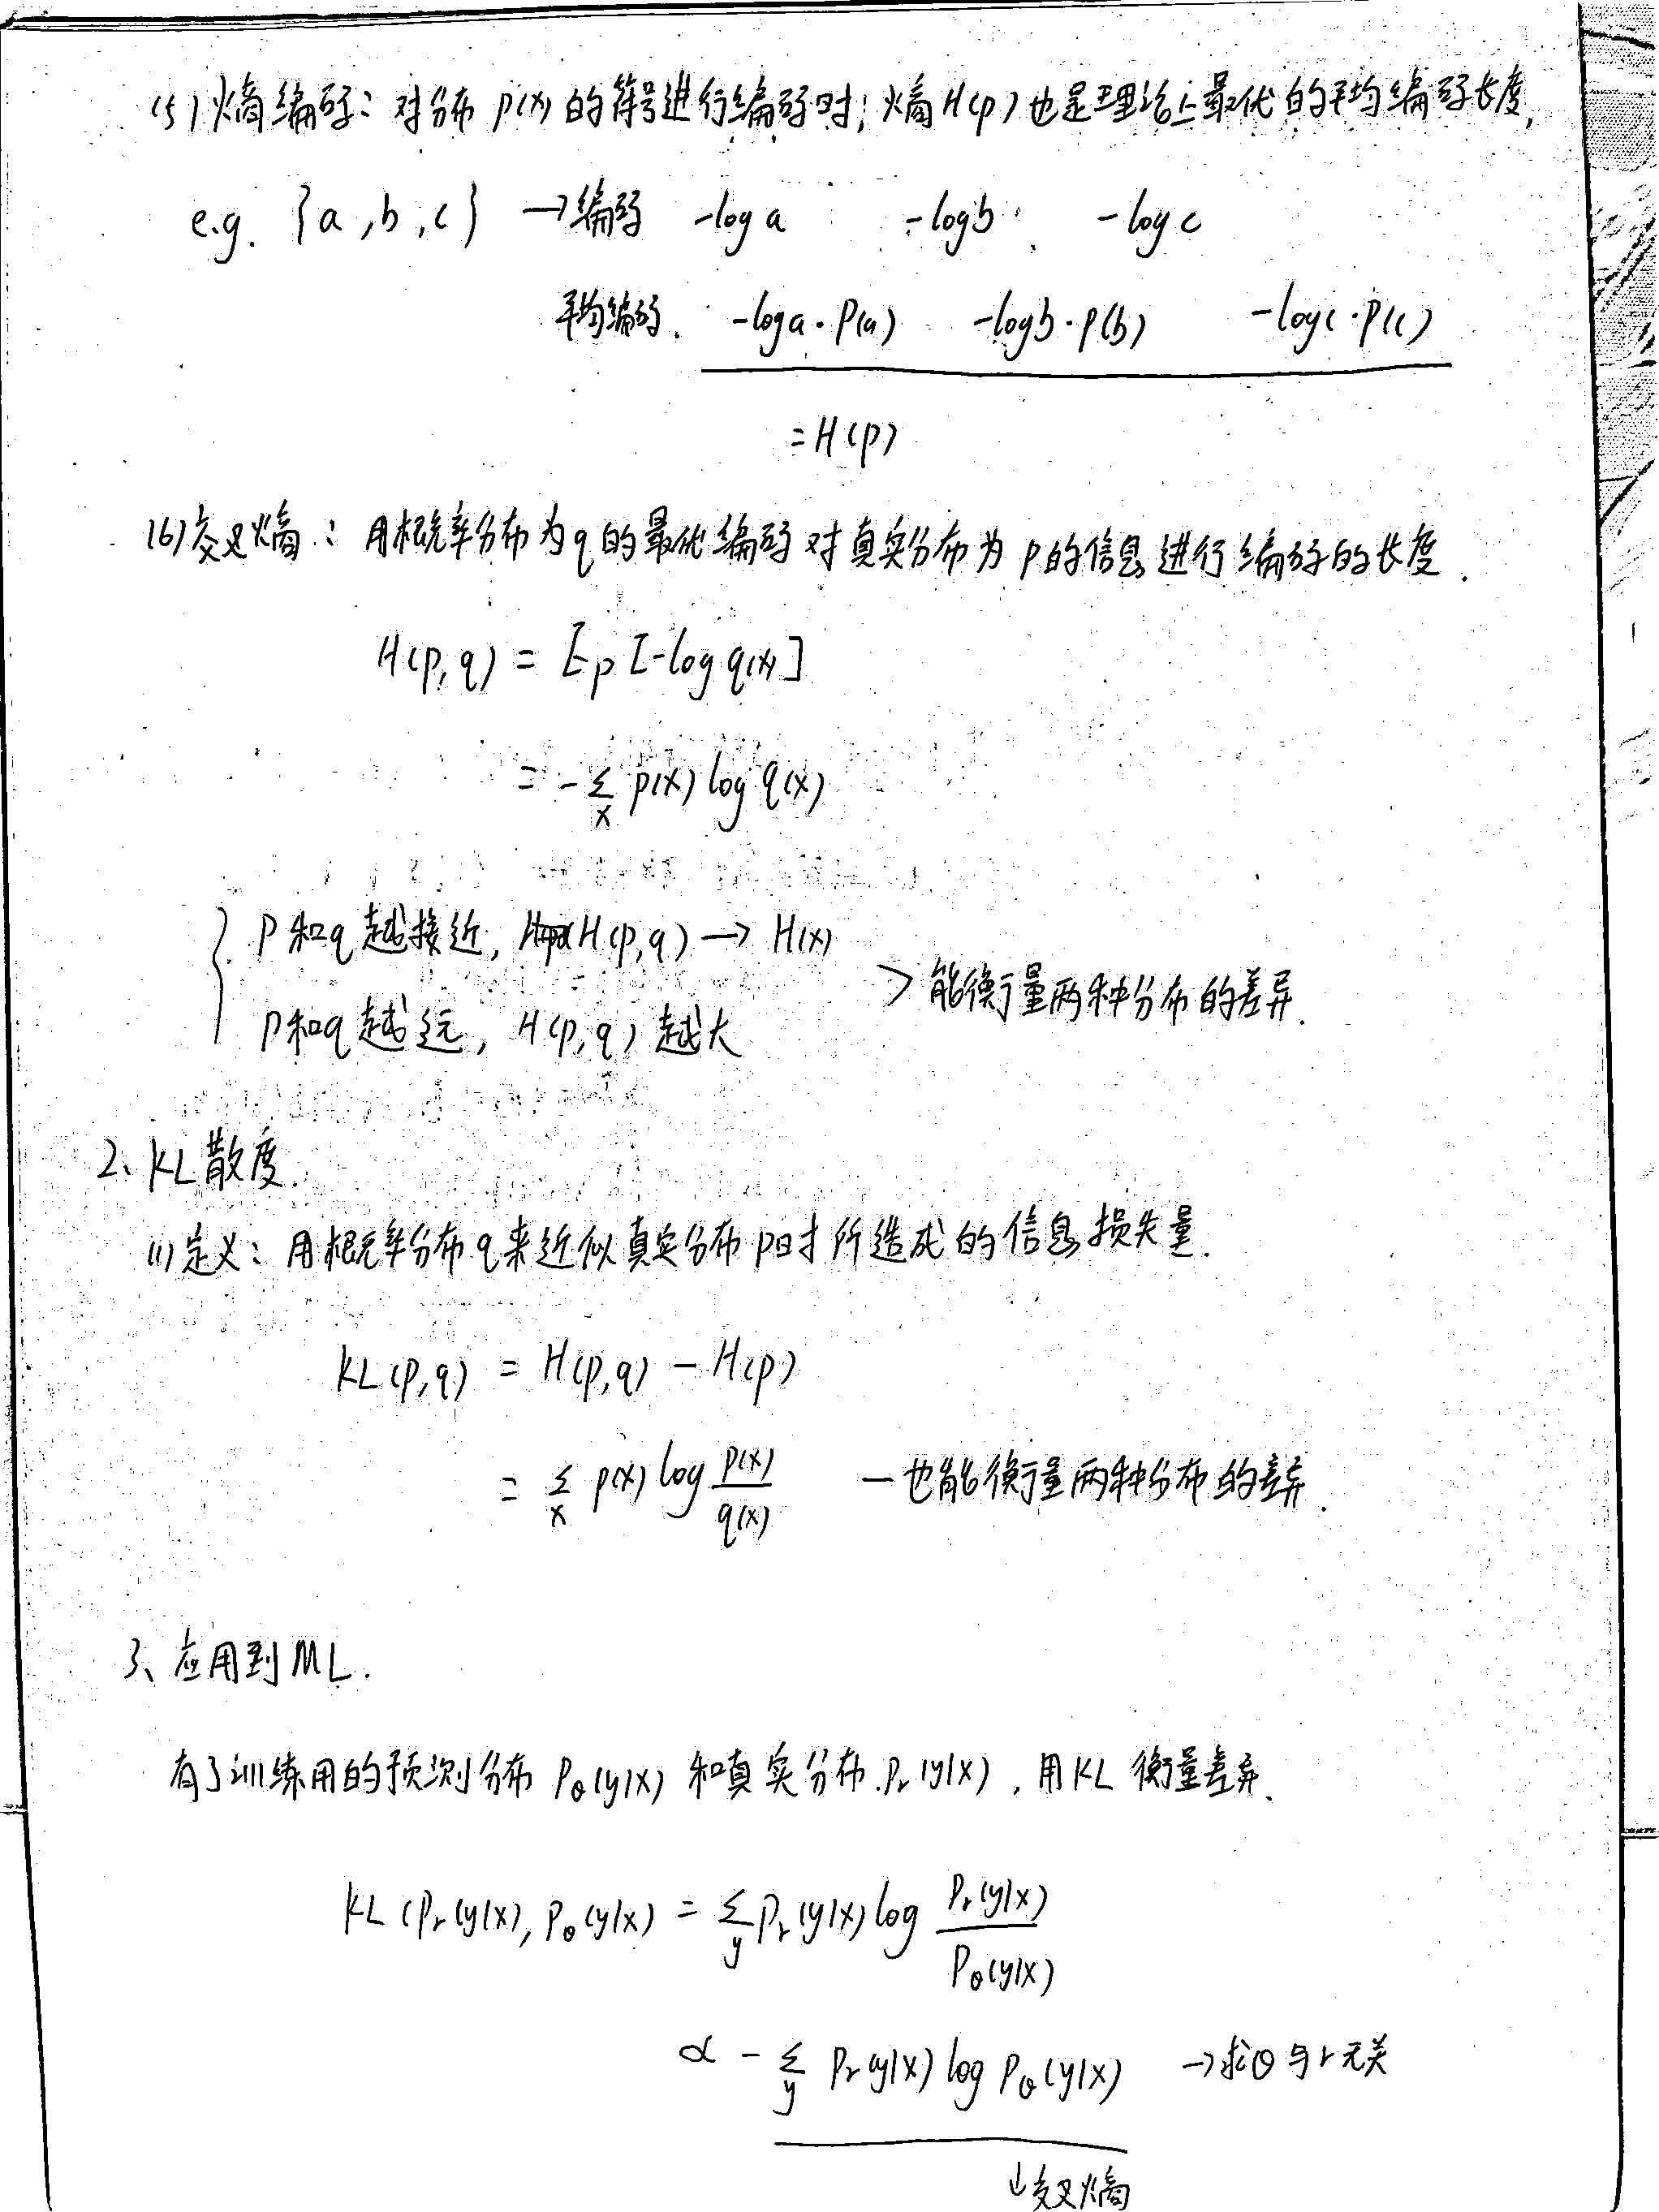 (5) 熵编码：对分布 p(x) 的符号进行编码时，熵 H(p) 也是理论上最优的平均编码长度，
e.g. {a, b, c} → 编码 -log a -log b -log c
平均编码. -log a · P(a) -log b · P(b) -log c · P(c)
= H(p)
(6) 交叉熵：用概率分布为q的最优编码对真实分布为p的信息进行编码的长度.
H(p,q) = Ep[-log q(x)]
= -∑x p(x) log q(x)
p和q越接近, H(p,q) → H(x)
> 能衡量两种分布的差异.
p和q越远, H(p,q) 越大
2、KL散度.
(1) 定义：用概率分布q来近似真实分布p时所造成的信息损失量.
KL(p,q) = H(p,q) - H(p)
= ∑x p(x) log p(x)/q(x) — 也能衡量两种分布的差异.
3、应用到ML.
有了训练用的预测分布 Pθ(y|x) 和真实分布 Pr(y|x), 用KL衡量差异.
KL(Pr(y|x), Pθ(y|x) = ∑y Pr(y|x) log Pr(y|x)/Pθ(y|x)
∝ -∑y Pr(y|x) log Pθ(y|x) → 求θ与r无关
↓交叉熵